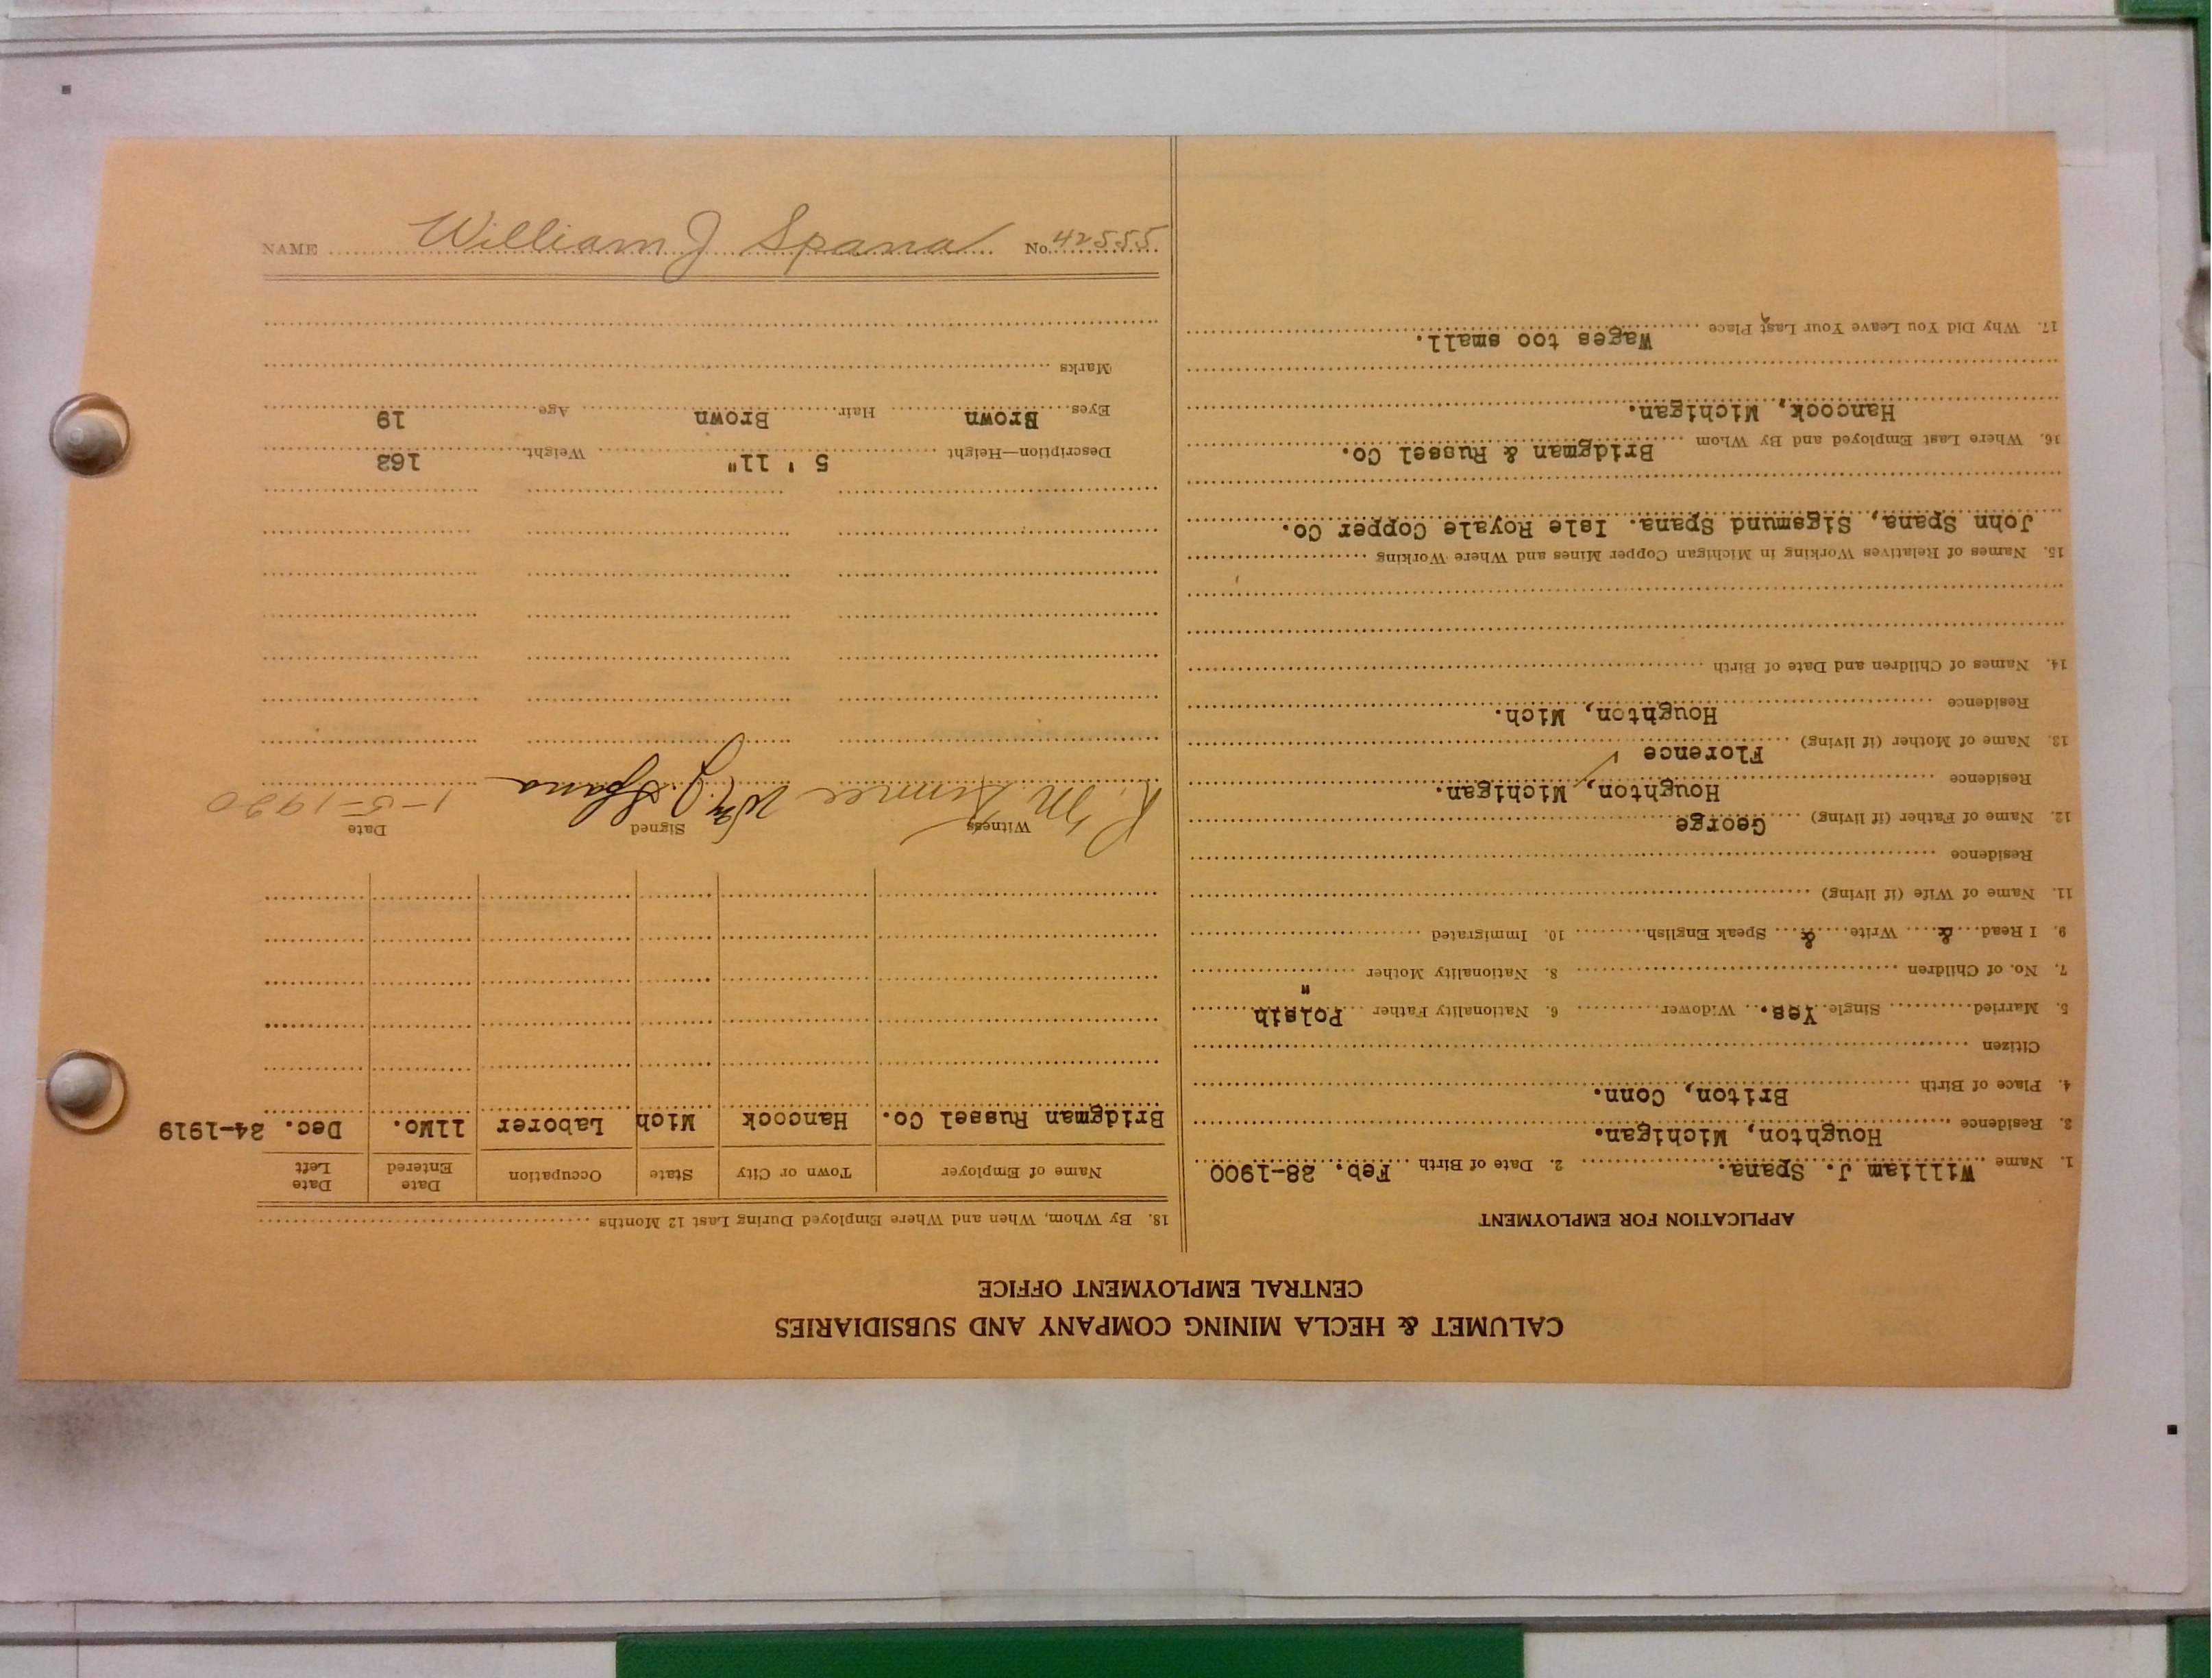 CALUMET & HECLA MINING COMPANY AND SUBSIDIARIES
CENTRAL EMPLOYMENT OFFICE
APPLICATION FOR EMPLOYMENT
1. Name William J. Spana. 2. Date of Birth Feb. 28-1900
3. Residence Houghton, Michigan.
4. Place of Birth Briton, Conn.
Citizen
5. Married Single Yes. Widower 6. Nationality Father Polsih
7. No. of Children 8. Nationality Mother "
9. I Read & Write & Speak English 10. Immigrated
11. Name of Wife (if living)
Residence
12. Name of Father (if living) George
Residence Houghton, Michigan.
13. Name of Mother (if living) Florence
Residence Houghton, Mich.
14. Names of Children and Date of Birth
15. Names of Relatives Working in Michigan Copper Mines and Where Working
John Spana, Sigsmund Spana. Isle Royale Copper Co.
16. Where Last Employed and By Whom Bridgman & Russel Co.
Hancock, Michigan.
17. Why Did You Leave Your Last Place Wages too small.
18. By Whom, When and Where Employed During Last 12 Months
Name of Employer Town or City State Occupation Date Entered Date Left
Bridgman Russel Co. Hancock Mich Laborer 11Mo. Dec. 24-1919
Witness Signed Date
R. M. Wm J. Spana 1-5-1920
Description—Height 5' 11" Weight 163
Eyes Brown Hair Brown Age 19
Marks
NAME William J Spana No. 42555